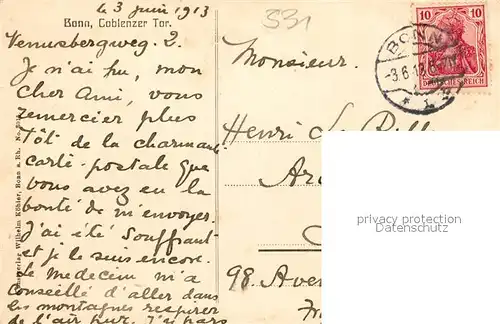 le 3 juin 1913
Bonn, Coblenzer Tor.
Venusbergweg. 2.
Je n'ai pu, mon
cher Ami, vous
remercier plus
tôt de la charmante
carte-postale que
vous avez eu la
bonté de m'envoyer.
J'ai été souffrant
et je le suis encore.
Le médecin m'a
conseillé d'aller dans
les montagnes respirer
de l'air pur. J'y pars
Kunstverlag Wilhelm Köhler, Bonn a. Rh.
531
10 10
DEUTSCHES REICH
BONN
-3.6.13
Monsieur.
Henri
98. Aven
privacy protection
Datenschutz